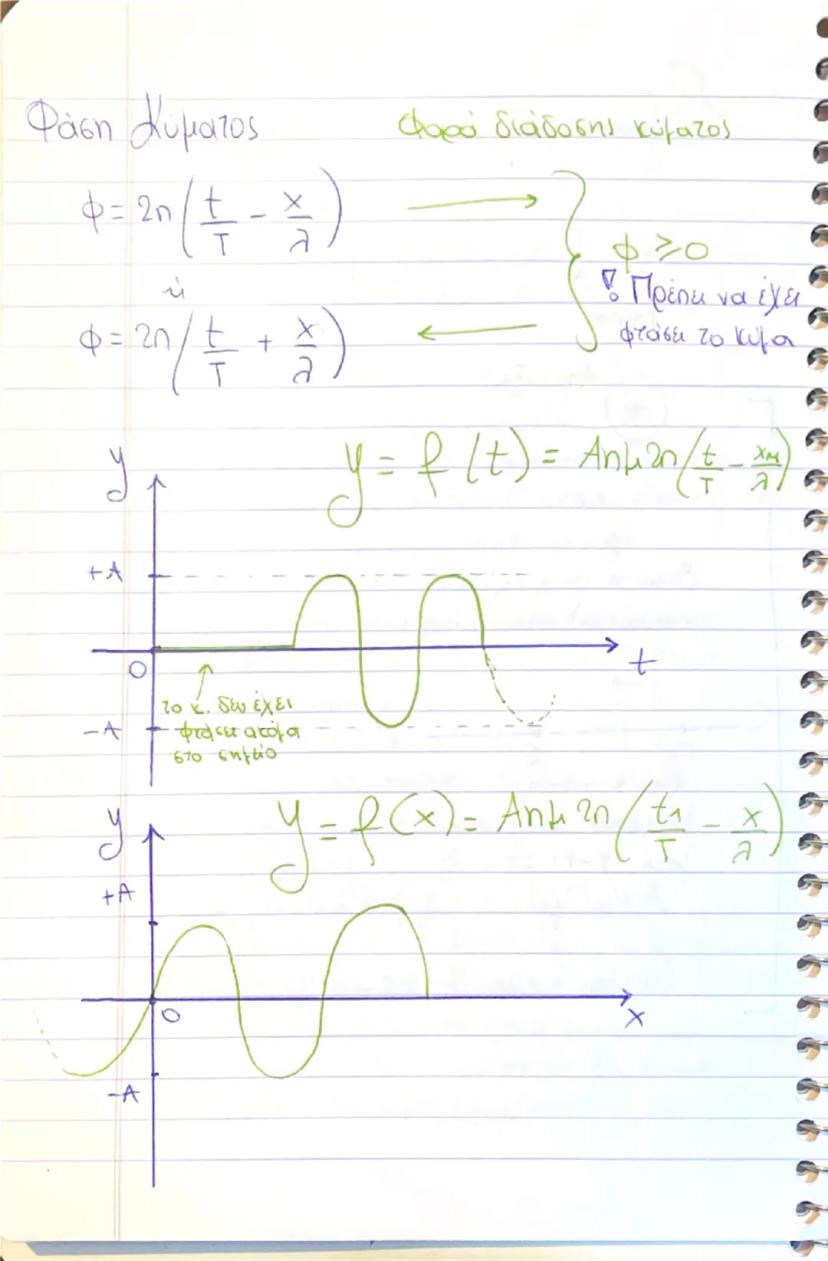 Φάση Κύματος
Φορά διάδοσης κύματος
φ = 2π(t/T - x/λ) →
ή
φ = 2π(t/T + x/λ) ←
φ ≥ 0
! Πρέπει να έχει
φτάσει το κύμα
y = f(t) = Aημ2π(t/T - xM/λ)
y
+A
0
t
-A
το κ. δεν έχει
φτάσει ακόμα
στο σημείο
y = f(x) = Aημ2π(t1/T - x/λ)
y
+A
0
x
-A